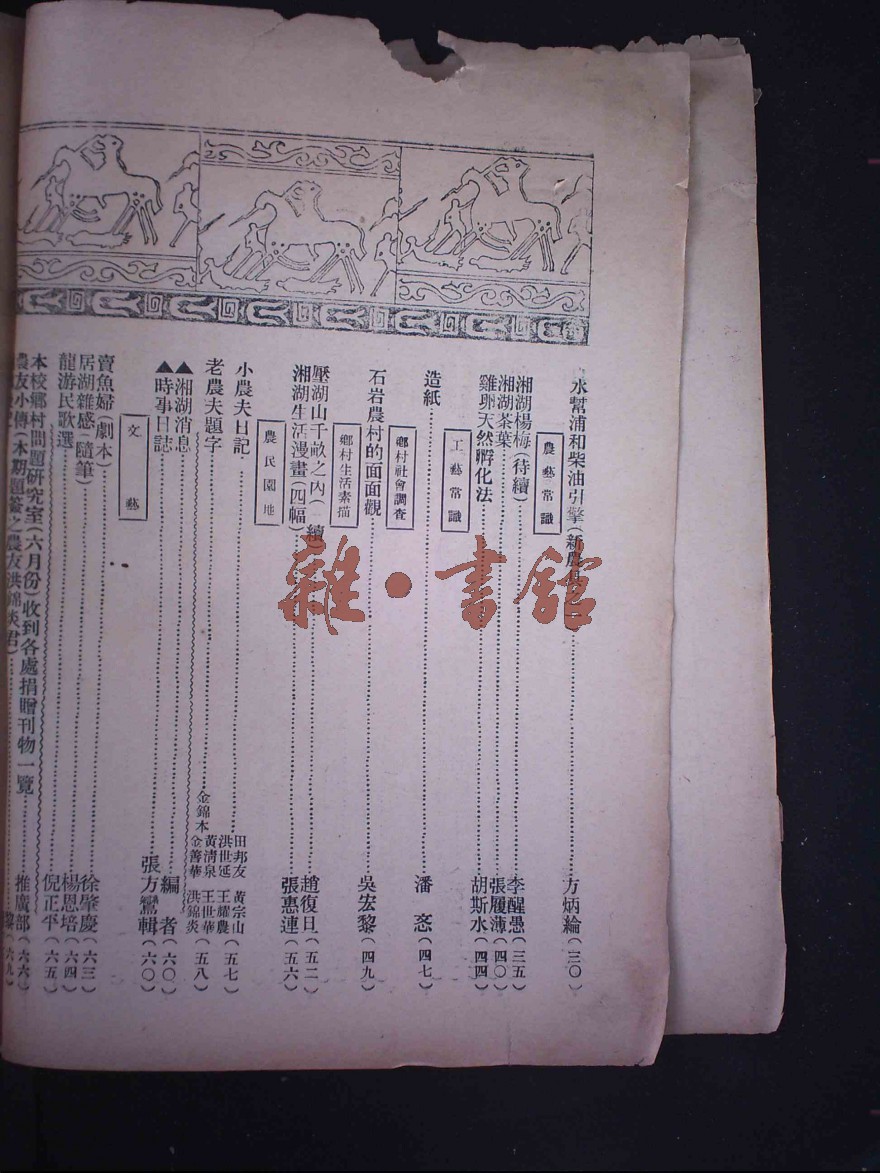 水幫浦和柴油引擎(新農具)……方炳綸(三〇)
農藝常識
湘湖楊梅(待續)……李醒愚(三五)
湘湖茶葉……張履薄(四〇)
雞卵天然孵化法……胡斯水(四四)
工藝常識
造紙……潘 (四七)
鄉村社會調查
石岩農村的面面觀……吳宏黎(四九)
鄉村生活素描
壓湖山千畝之內(續)……趙復日(五二)
湘湖生活漫畫(四幅)……張惠連(五六)
農民園地
小農夫日記……田邦友 黃宗山 洪世延 王耀農(五七)
老農夫題字……金錦本 黃淸泉 王世華 金善華 洪錦炎(五八)
▲湘湖消息……編 者(六〇)
▲時事日誌……張方鸞輯(六〇)
文藝
賣魚婦(劇本)……徐肇慶(六三)
居湖雜感(隨筆)……楊恩培(六四)
龍游民歌選……倪正平(六五)
本校鄉村問題研究室(六月份)收到各處捐贈刊物一覽……推廣部(六六)
農友小傳(本期題蓋之農友洪錦炎君)……黎(六九)
雜·書館